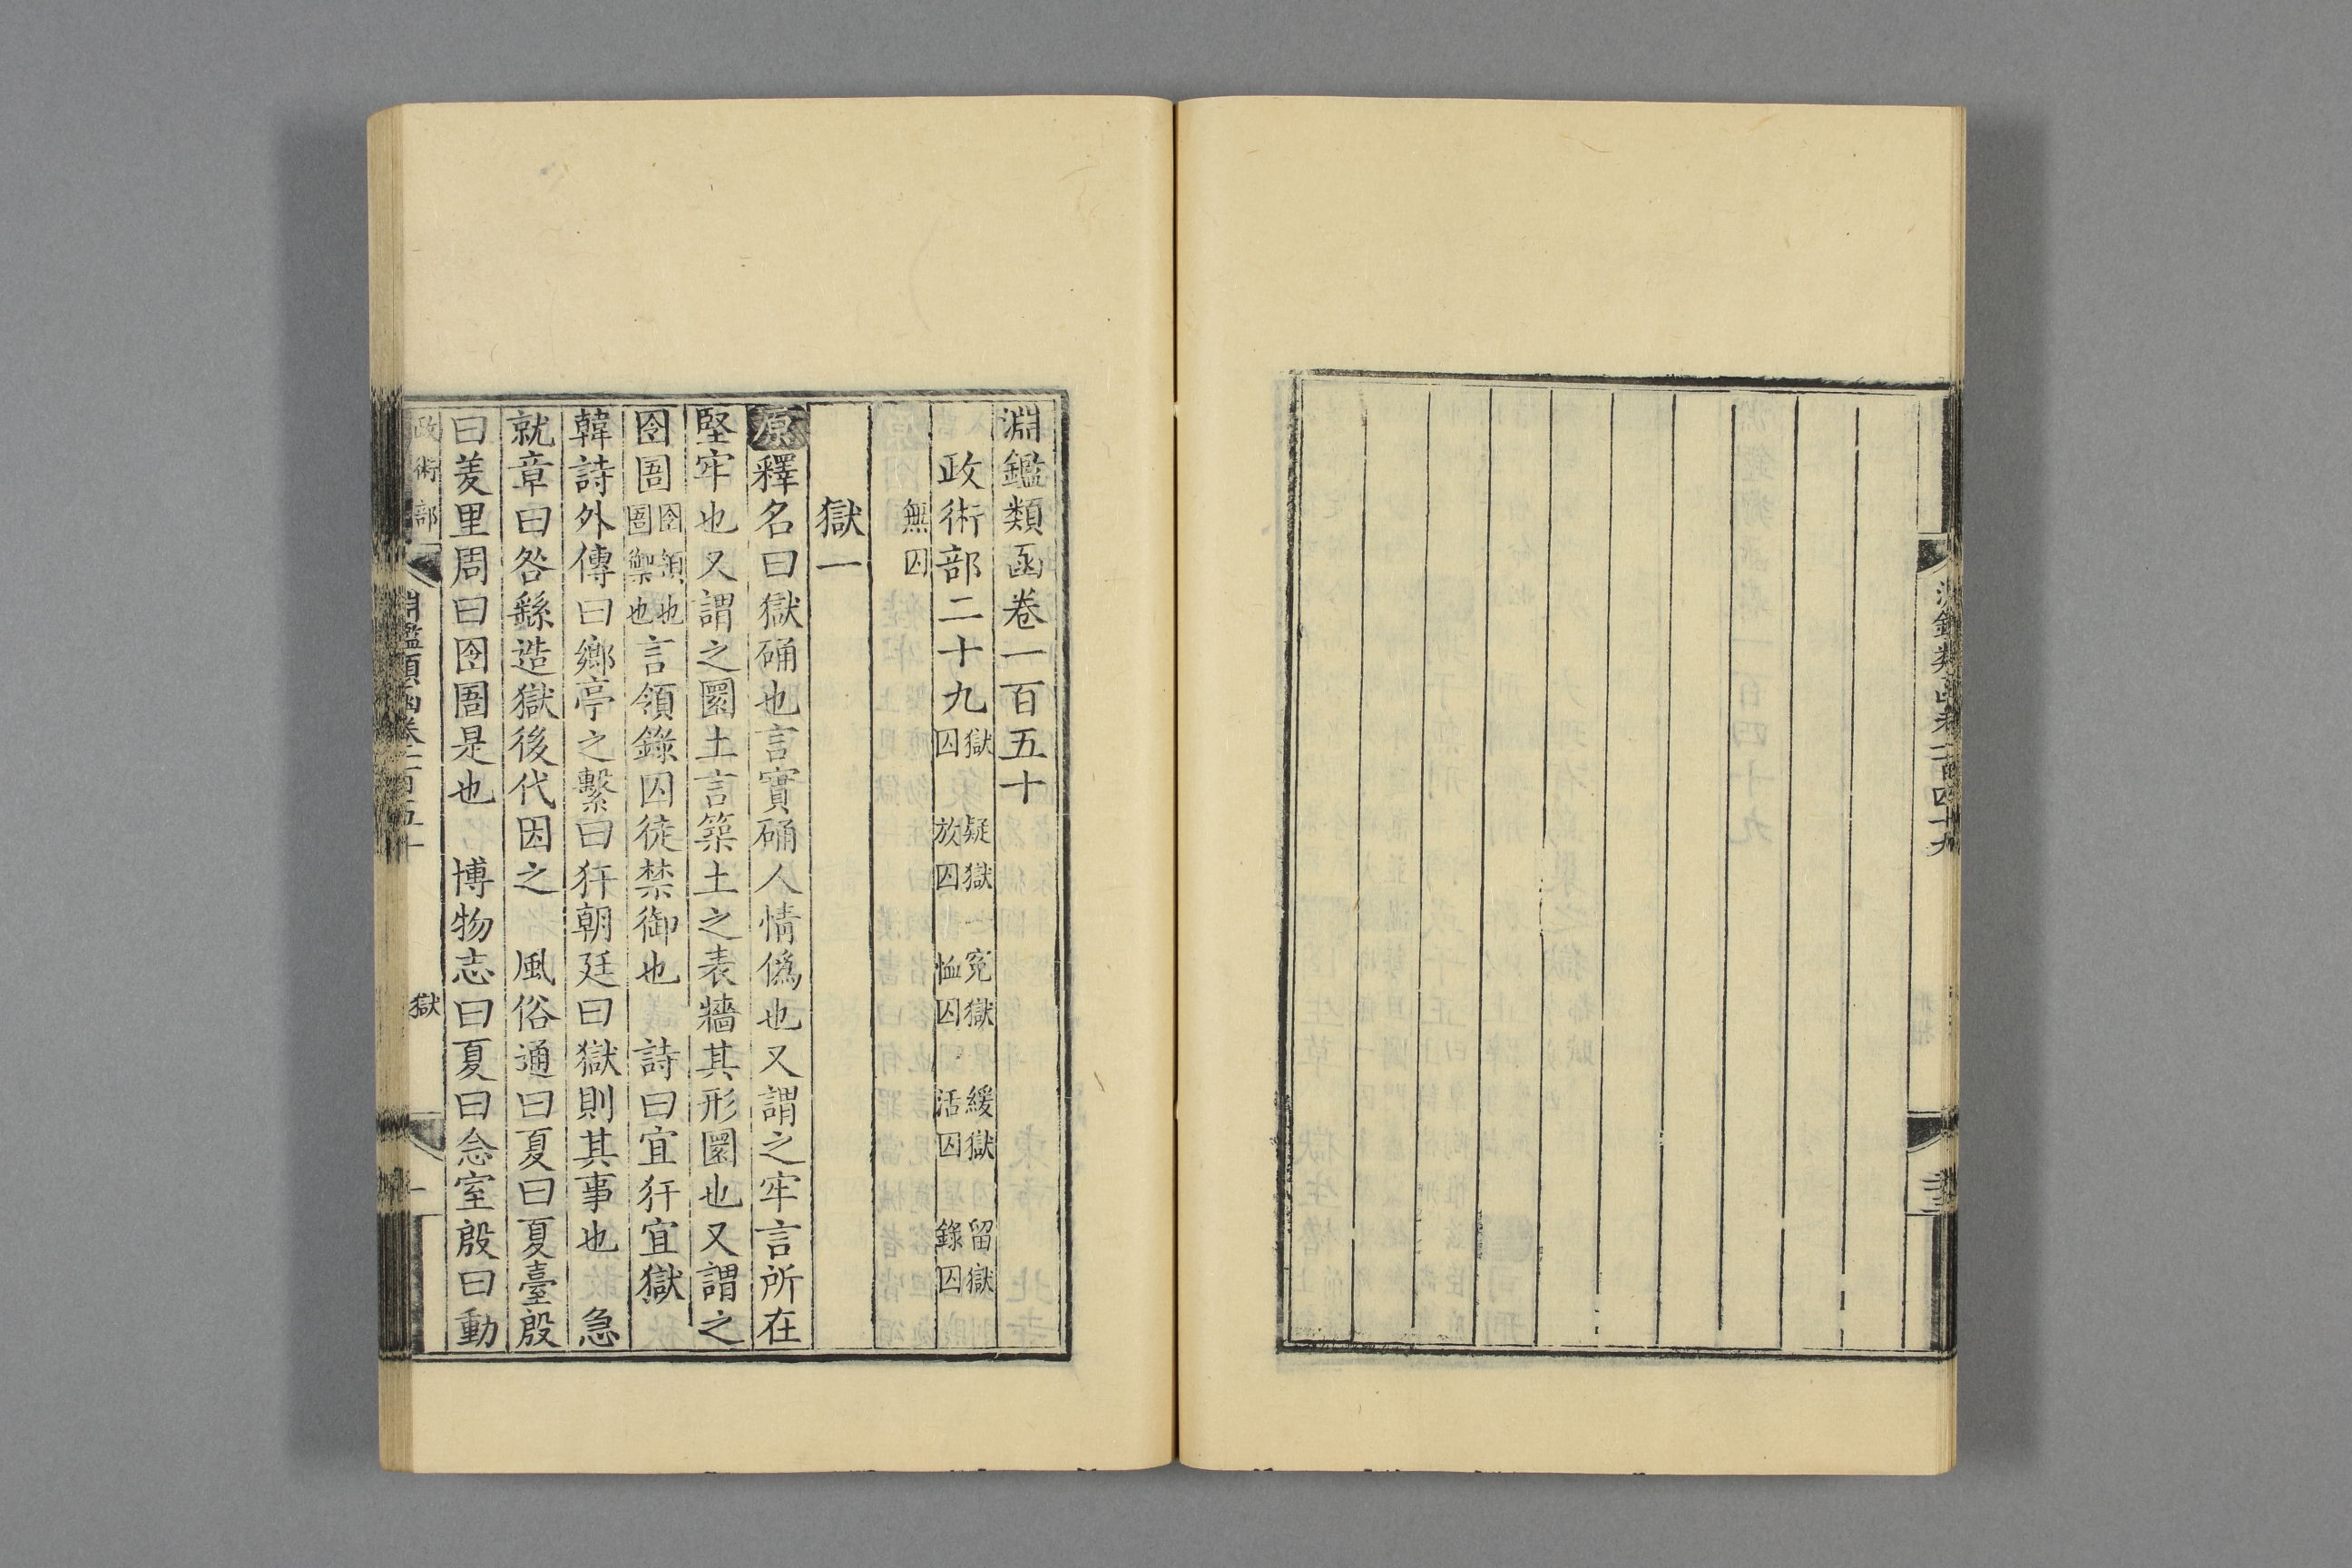 淵鑑類函卷一百四十九
淵鑑類函卷一百五十
政術部二十九 獄 疑獄 冤獄 緩獄 留獄
囚 放囚 恤囚 活囚 錄囚
無囚
獄一
原釋名曰獄确也言實确人情偽也又謂之牢言所在
堅牢也又謂之圜土言築土之表牆其形圜也又謂之
囹圄囹領也圄禦也言領錄囚徒禁御也 詩曰宜犴宜獄
韓詩外傳曰鄉亭之繫曰犴朝廷曰獄則其事也 急
就章曰咎繇造獄後代因之 風俗通曰夏曰夏臺殷
曰羑里周曰囹圄是也 博物志曰夏曰念室殷曰動
政術部
淵鑑類函卷一百五十
獄
一